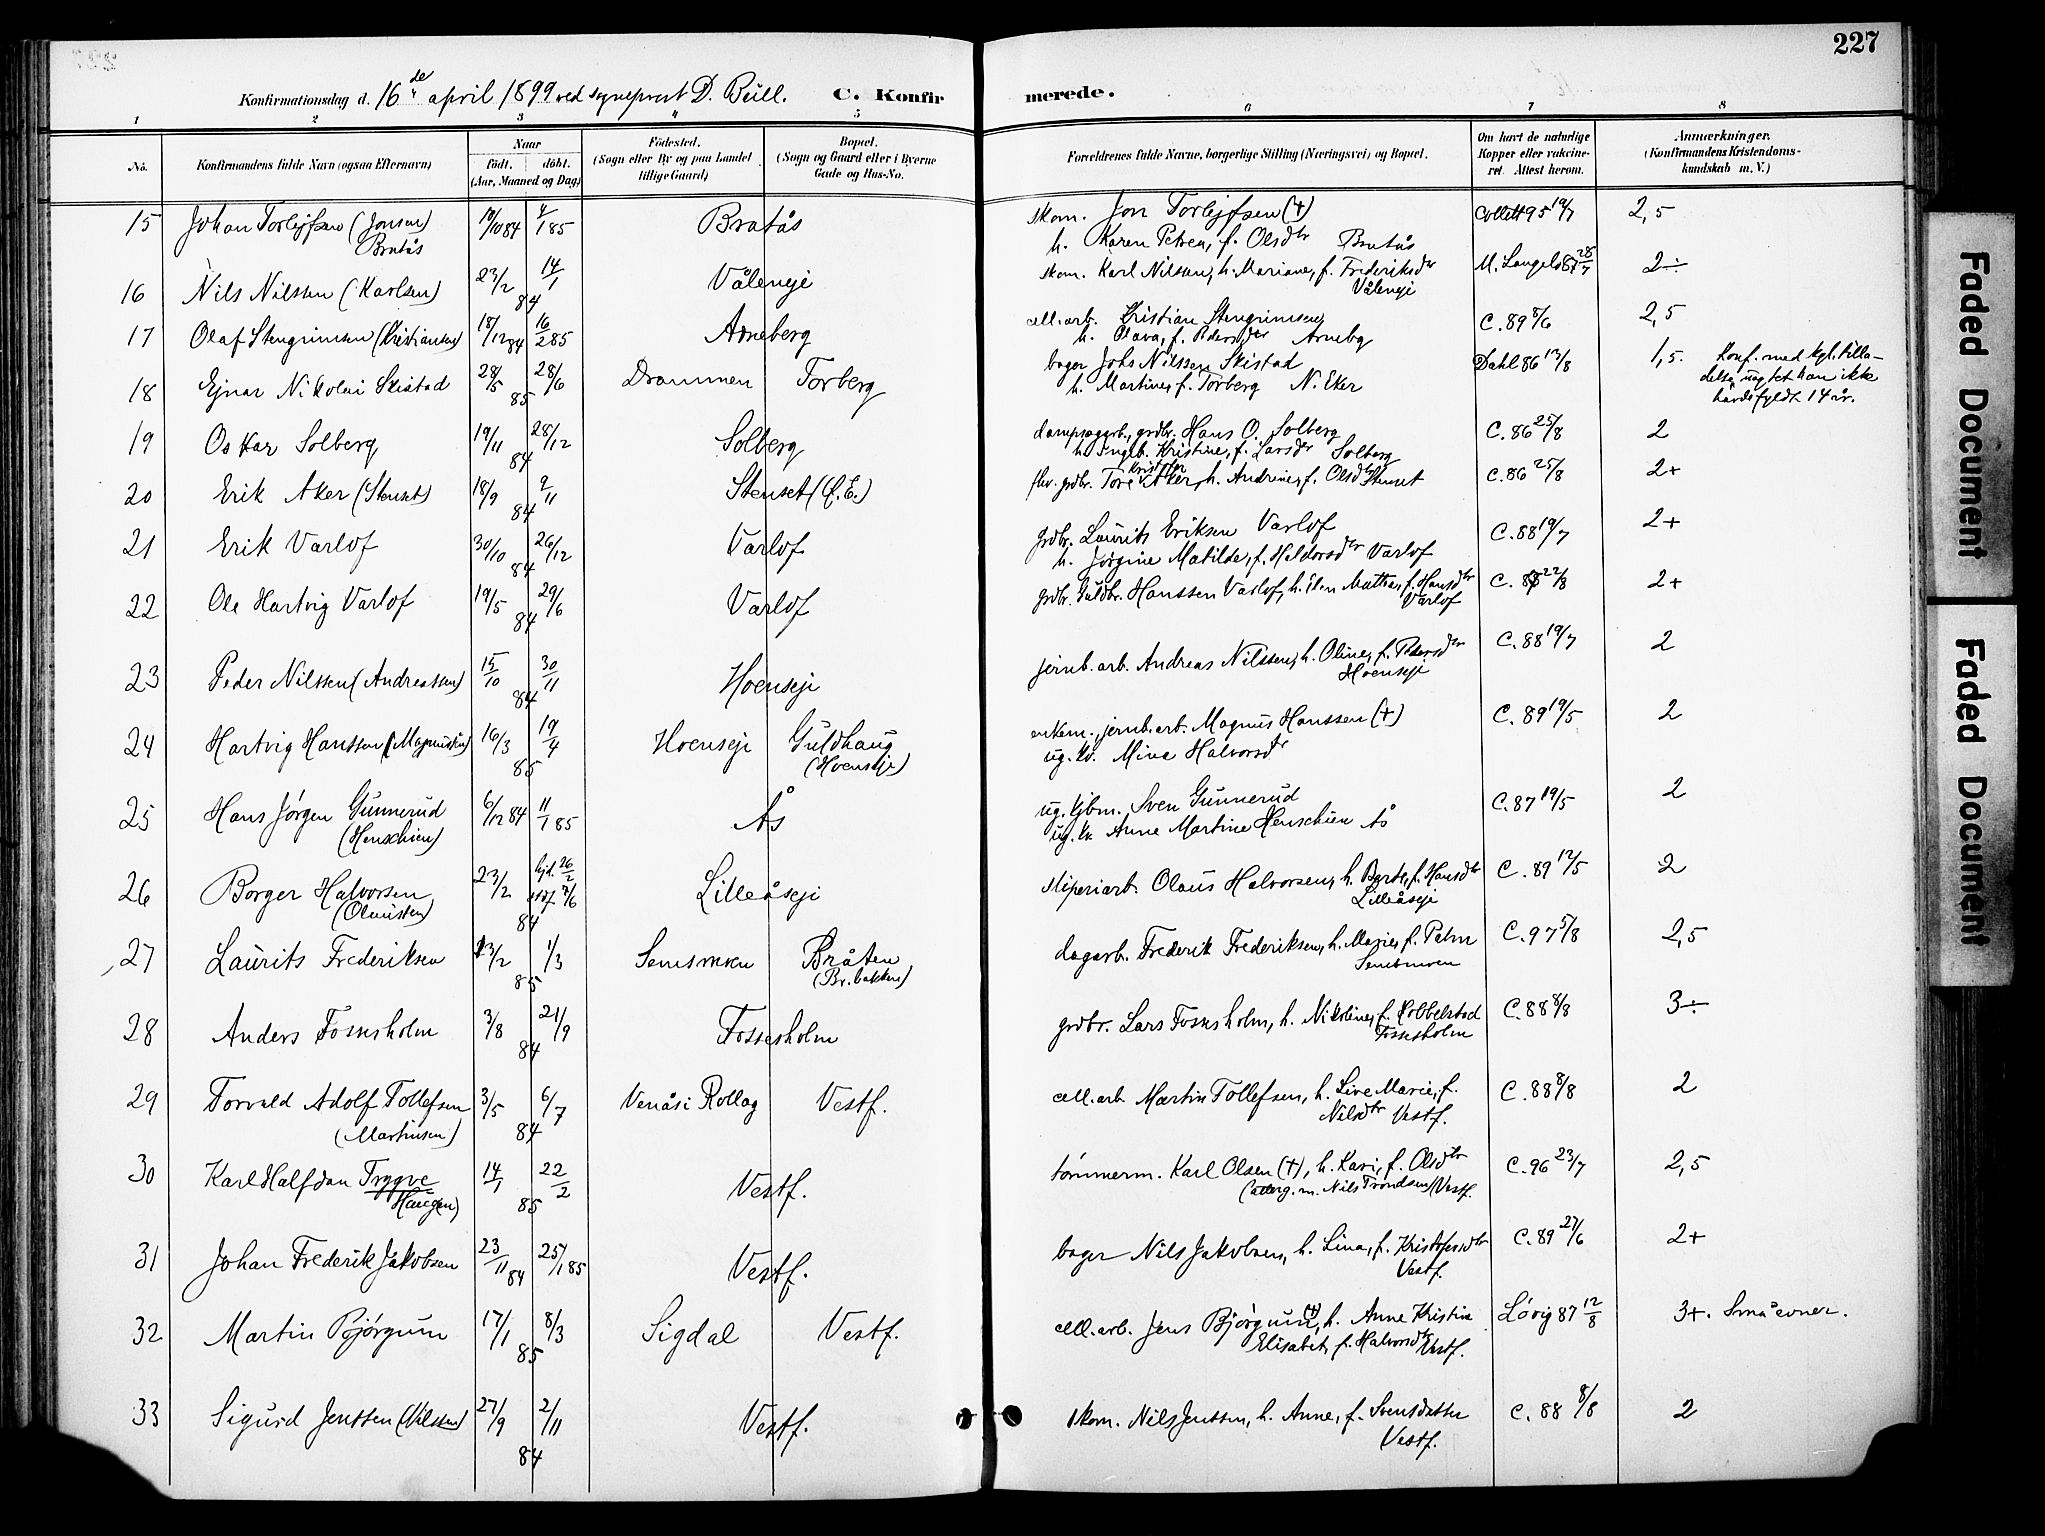 227
Konfirmationsdag d. 16de april 1899 ved sogneprest D. Bull. C. Konfirmerede.
1 2 3 4 5 6 7 8
No. Konfirmandens fulde Navn (ogsaa Efternavn) Naar födt. döbt. (Aar, Maaned og Dag) Födested. (Sogn eller By og paa Landet tillige Gaard) Bopæl. (Sogn og Gaard eller i Byerne Gade og Hus-No. Forældrenes fulde Navne, borgerlige Stilling (Næringsvei) og Bopæl. Om havt de naturlige Kopper eller vakcineret. Attest herom. Anmærkninger. (Konfirmandens Kristendomskundskab m. V.)
15 Johan Torlejfsen (Jonsen) 10/10 84 4/1 85 Bratås skom. Jon Torlejfsen (+) Collett 95 19/7 2,5
Bratås h. Karen Petrea, f. Olsdtr Bratås
16 Nils Nilssen (Karlsen) 23/2 84 14/1 Våleneje skom. Karl Nilsen, h. Mariane, f. Frederiksdtr M. Langels 87 28/7 2÷
Våleneje
17 Olaf Stengrimsen (Kristiansen) 18/12 84 16/2 85 Arneberg cell.arb. Kristian Stengrimsen C. 89 8/6 2,5
h. Olava, f. Pedersdtr Arnebg
18 Ejnar Nikolai Skistad 28/5 85 28/6 Drammen Torberg bager Johs Nilssen Skistad Dahl 86 13/8 1,5. Konf. med kgl. tilla-
h. Martine, f. Torberg N. Eker delse uagtet han ikke
havde fyldt 14 år.
19 Oskar Solberg 19/11 84 28/12 Solberg dampsagarb., grdbr. Hans O. Solberg C. 86 25/8 2
h. Ingeb. Kristine, f. Larsdtr Solberg
20 Erik Aker (Stenset) 18/9 84 2/11 Stenset (Ø. E.) grdbr. Tore Kristofer Aker, h. Andrine, f. Olsdtr Stenset C. 86 25/8 2+
21 Erik Varlof 30/10 84 26/12 Varlof grdbr. Laurits Eriksen Varlof C. 88 19/7 2+
h. Jørgine Matilde, f. Haldorsdtr Varlof
22 Ole Hartvig Varlof 19/5 84 29/6 Varlof grdbr. Guldbr. Hanssen Varlof, h. Elen Mathea, f. Hansdtr C. 22/8 2+
Varlof
23 Peder Nilssen (Andreassen) 15/10 84 30/11 Hoenseje jernb.arb. Andreas Nilssen, h. Oline, f. Pedersdtr C. 88 19/7 2
Hoenseje
24 Hartvig Hanssen (Magnussen) 16/3 85 19/4 Hoenseje Guldhaug enkem., jernb.arb. Magnus Hanssen (+) C. 89 19/5 2
(Hoenseje) ug. kv. Mina Halvorsdtr
25 Hans Jørgen Gunnerud 6/12 84 11/1 85 Ås ug. kjbm. Sven Gunnerud C. 87 19/5 2
(Henschien) ug. kv. Anne Martine Henschien Ås
26 Borger Halvorsen 23/2 84 hjd. 26/2 stdf. 2/6 Lilleåseje sliperiarb. Olaus Halvorsen, h. Berte, f. Hansdtr C. 89 12/5 2
(Olaussen) Lilleåseje
27 Laurits Frederiksen 13/2 85 1/3 Semsmoen Bråten dagarb. Frederik Frederiksen, h. Marie, f. Palm C. 97 5/8 2,5
(Br. bakken) Semsmoen
28 Anders Fossesholm 3/8 84 21/9 Fossesholm grdbr. Lars Fossesholm, h. Nikoline, f. Kobbelstad C. 88 8/8 3÷
Fossesholm
29 Torvald Adolf Tollefsen 3/5 84 6/7 Venåsi Rollag Vestf. cell.arb Martin Tollefsen, h. Live Marie, f. C. 88 8/8 2
(Martinsen) Nilsdtr Vestf.
30 Karl Halfdan Trygve 14/1 85 22/2 Vestf. tømmerm. Karl Olsen (+), h. Kari, f. Olsdtr C. 96 23/7 2,5
Haug(en) m. Nils Trondsen) Vestf.
31 Johan Frederik Jakobsen 23/11 84 25/1 85 Vestf. bager Nils Jakobsen, h. Lina, f. Kristofersdtr C. 89 27/6 2+
Vestf.
32 Martin Bjørgum 17/1 85 8/3 Sigdal Vestf. cell.arb. Jens Bjørgum (+), h. Anne Kristine Lövig 87 12/8 3+. Små evner.
Elisabet, f. Halvorsdtr Vestf.
33 Sigurd Jenssen (Nilssen) 27/9 84 2/11 Vestf. skom. Nils Jenssen, h. Anne, f. Svensdatter C. 88 8/8 2
Vestf.
Faded Document
Faded Document